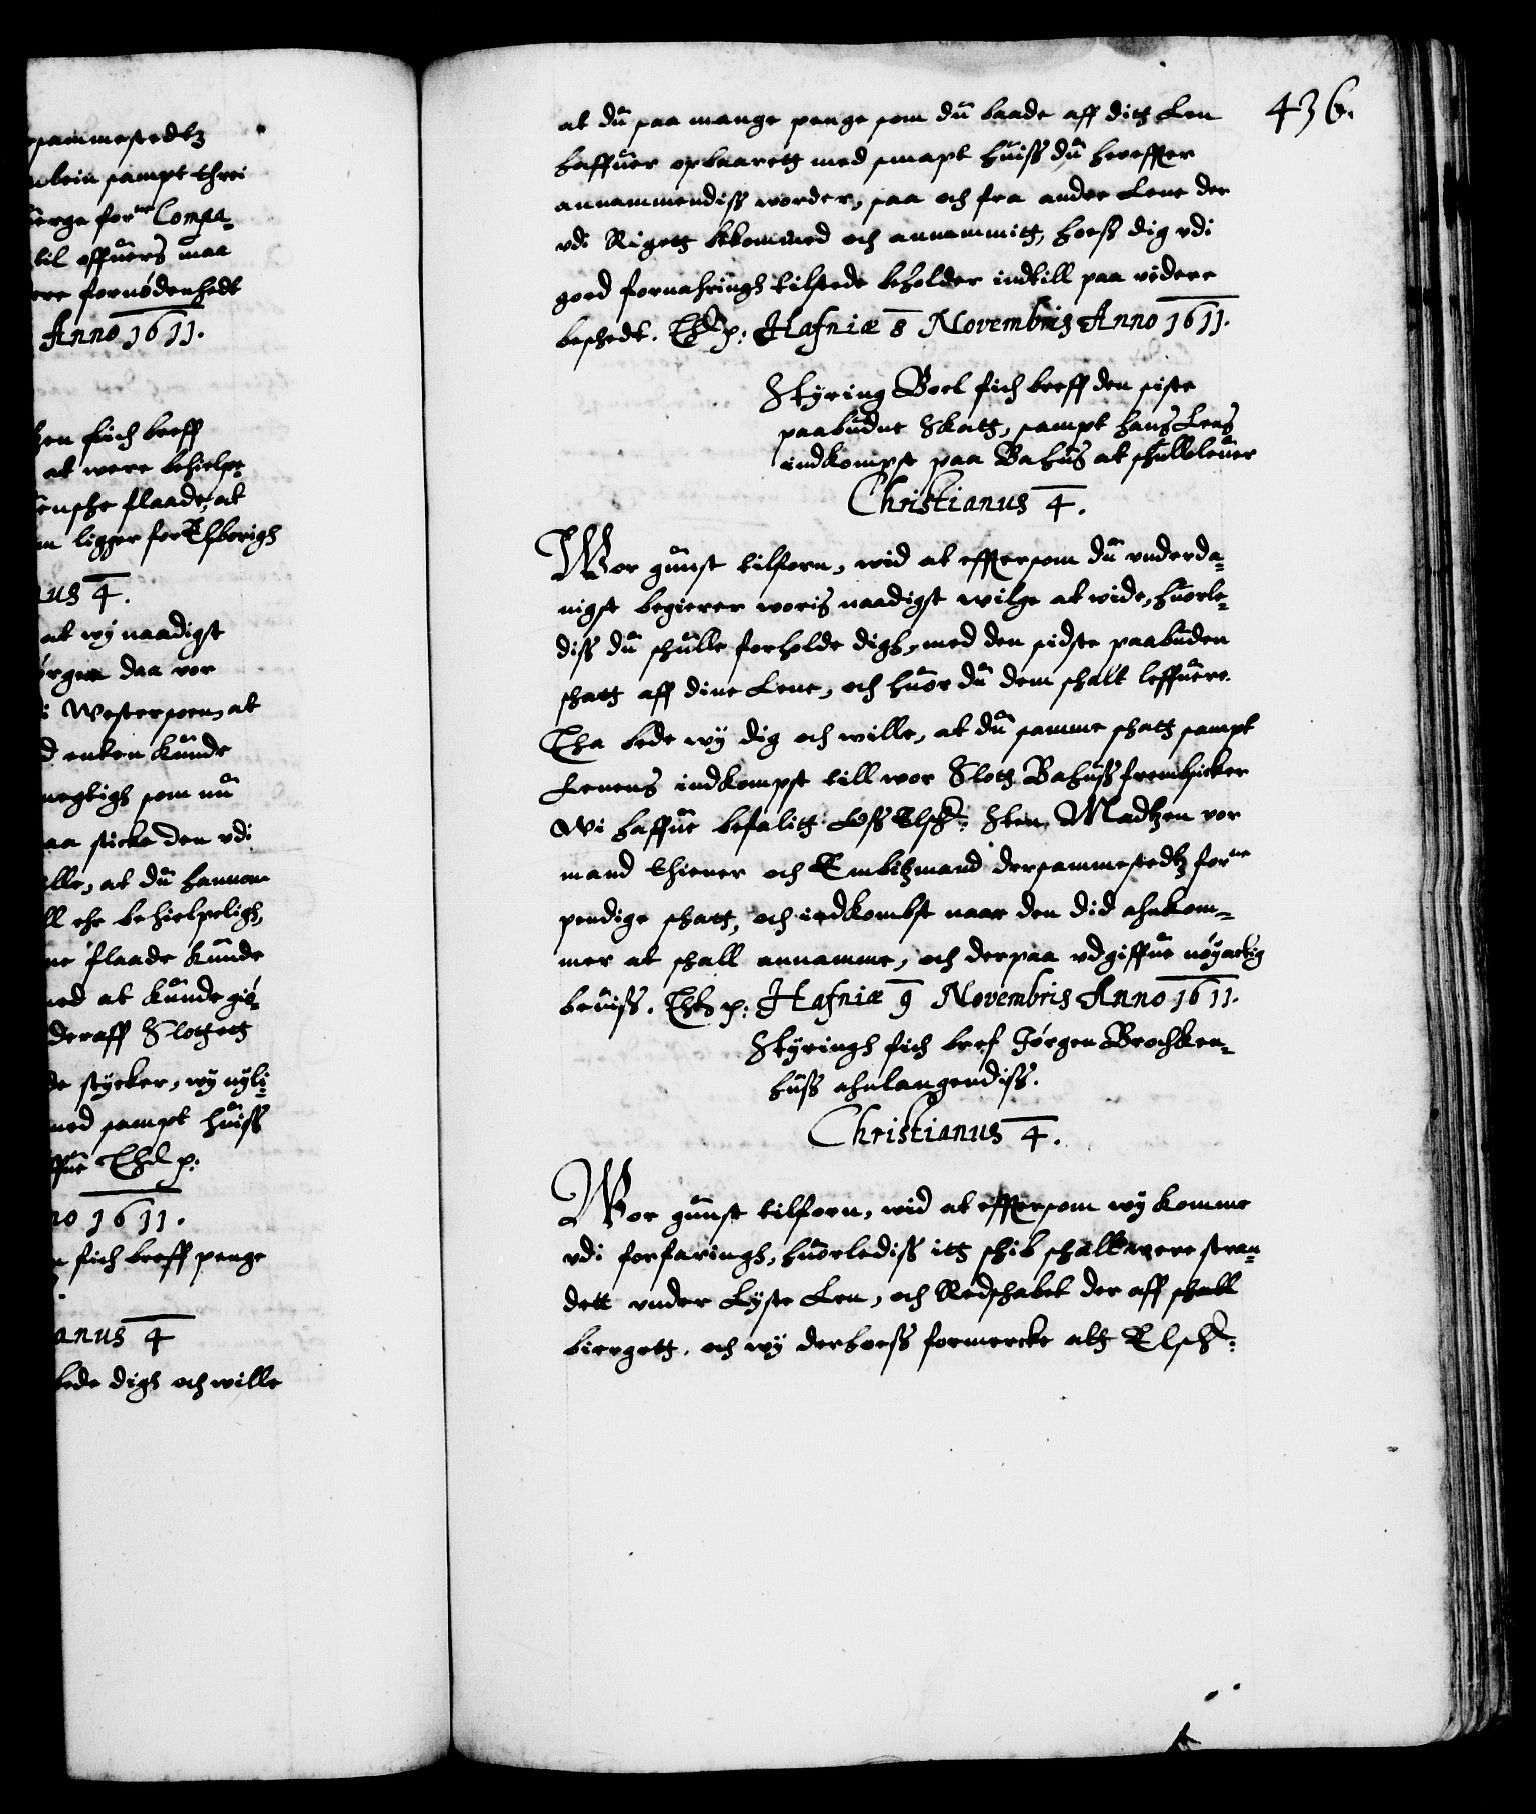 psammestedtz
lein sampt threi
uerge forne Compa-
til offuers maa
ere fornødenhedt
Anno 1611.
zen fich breff
at were behielpe
ensche flaade, at
m ligger for Elsborigh
us 4.
at wy naadigst
ørgen daa vor
i Westersoen, at
d enten kunde
megtigh som nu
aa sticke den vdi
lle, at du hannom
ll ehr behielpeligh,
ne flaade kunde
med at kunde giø-
deraff Slottett
de stycker, wy nyli-
med sampt huiss
ffue Thd p:
no 1611.
fich breff penge
anus 4
bede digh och wille
436.
at du saa mange penge som du baade aff ditz Len
haffuer opbaaretz med smapt huiss du hereffter
annammendiss worder, saa och fra andre Lene der
vdi Rigetz bekommed och annammitz, hoess dig vdi
goed fornahringh tilstede beholder indtill paa videre
beschedt. Thd p: Hafniæ 8 Novembris Anno 1611.
Styring Boel fich breff den siste
paabudne Skatz, sampt hans Lens
indkompst paa Bahus at schulle leuer
Christianus 4.
Wor gunst tilforn, wid at efftersom du vnderda-
nigst begierer woris naadigst wilge at wide, huorle-
diss du schulle forholde digh, med den sidste paabuden
schatz aff dine Lene, och huor du dem schalt leffuere.
Tha bede wy dig och wille, at du samme schatz sampt
Lenens indkompst till wor Slotz Bahuss fremschicker
Wi haffue befalitz Oss Elsch: Sten Madtzen vor
mand thiener och Embitzmand dersammestedtz forne
pendige schatz, och indkombst naar den did ahnkom-
mer at schall annamme, och derpaa vdgiffue nøyactig
beuiss. Thd p: Hafniæ 9 Novembris Anno 1611.
Styringh fich bref Jørgen Brochken-
huss ahnlangendiss.
Christianus 4.
Wor gunst tilforn, wid at efftersom wy komme
vdi forfaringh, huorlediss itz schib schall were stran-
dett vnder Lyste Len, och Redschabet der aff schall
biergetz, och wy derhoess formercke atz Elsch: